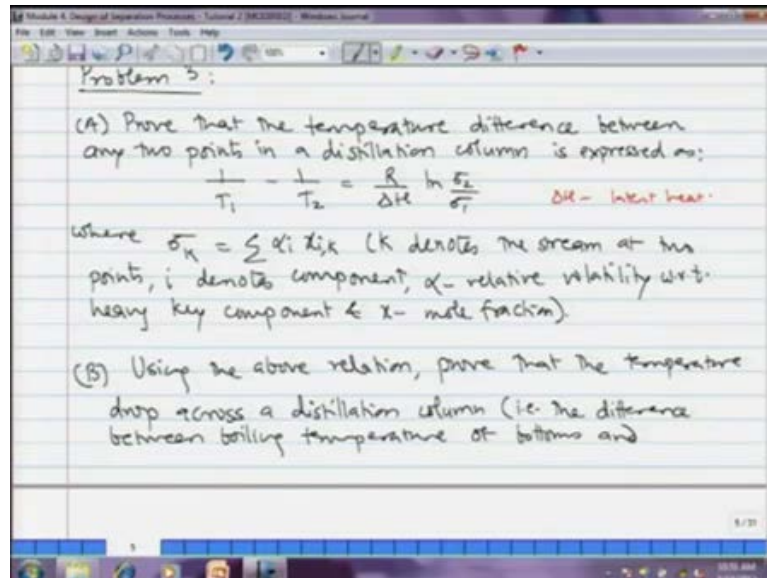 Module 4. Design of Separation Processes - Tutorial 2 - Windows Journal
File Edit View Insert Actions Tools Help
Problem 3:
(A) Prove that the temperature difference between
any two points in a distillation column is expressed as:
1/T₁ - 1/T₂ = R/ΔH ln σ₂/σ₁ ΔH - latent heat.
where σ_K = Σ αi xi,k (K denotes the stream at two
points, i denotes component, α- relative volatility w.r.t.
heavy key component & x- mole fraction).
(B) Using the above relation, prove that the temperature
drop across a distillation column (i.e. the difference
between boiling temperature of bottoms and
5/31
10:56 AM